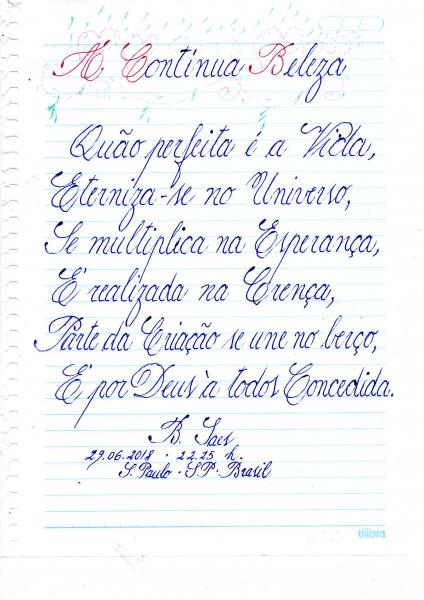 A Contínua Beleza
Quão perfeita é a Vida,
Eterniza-se no Universo,
Se multiplica na Esperança,
É realizada na Crença,
Parte da Criação se une no berço,
É por Deus à todos Concedida.
B. Saes
29.06.2018 · 22.25 h.
S. Paulo · SP · Brasil
tilibra